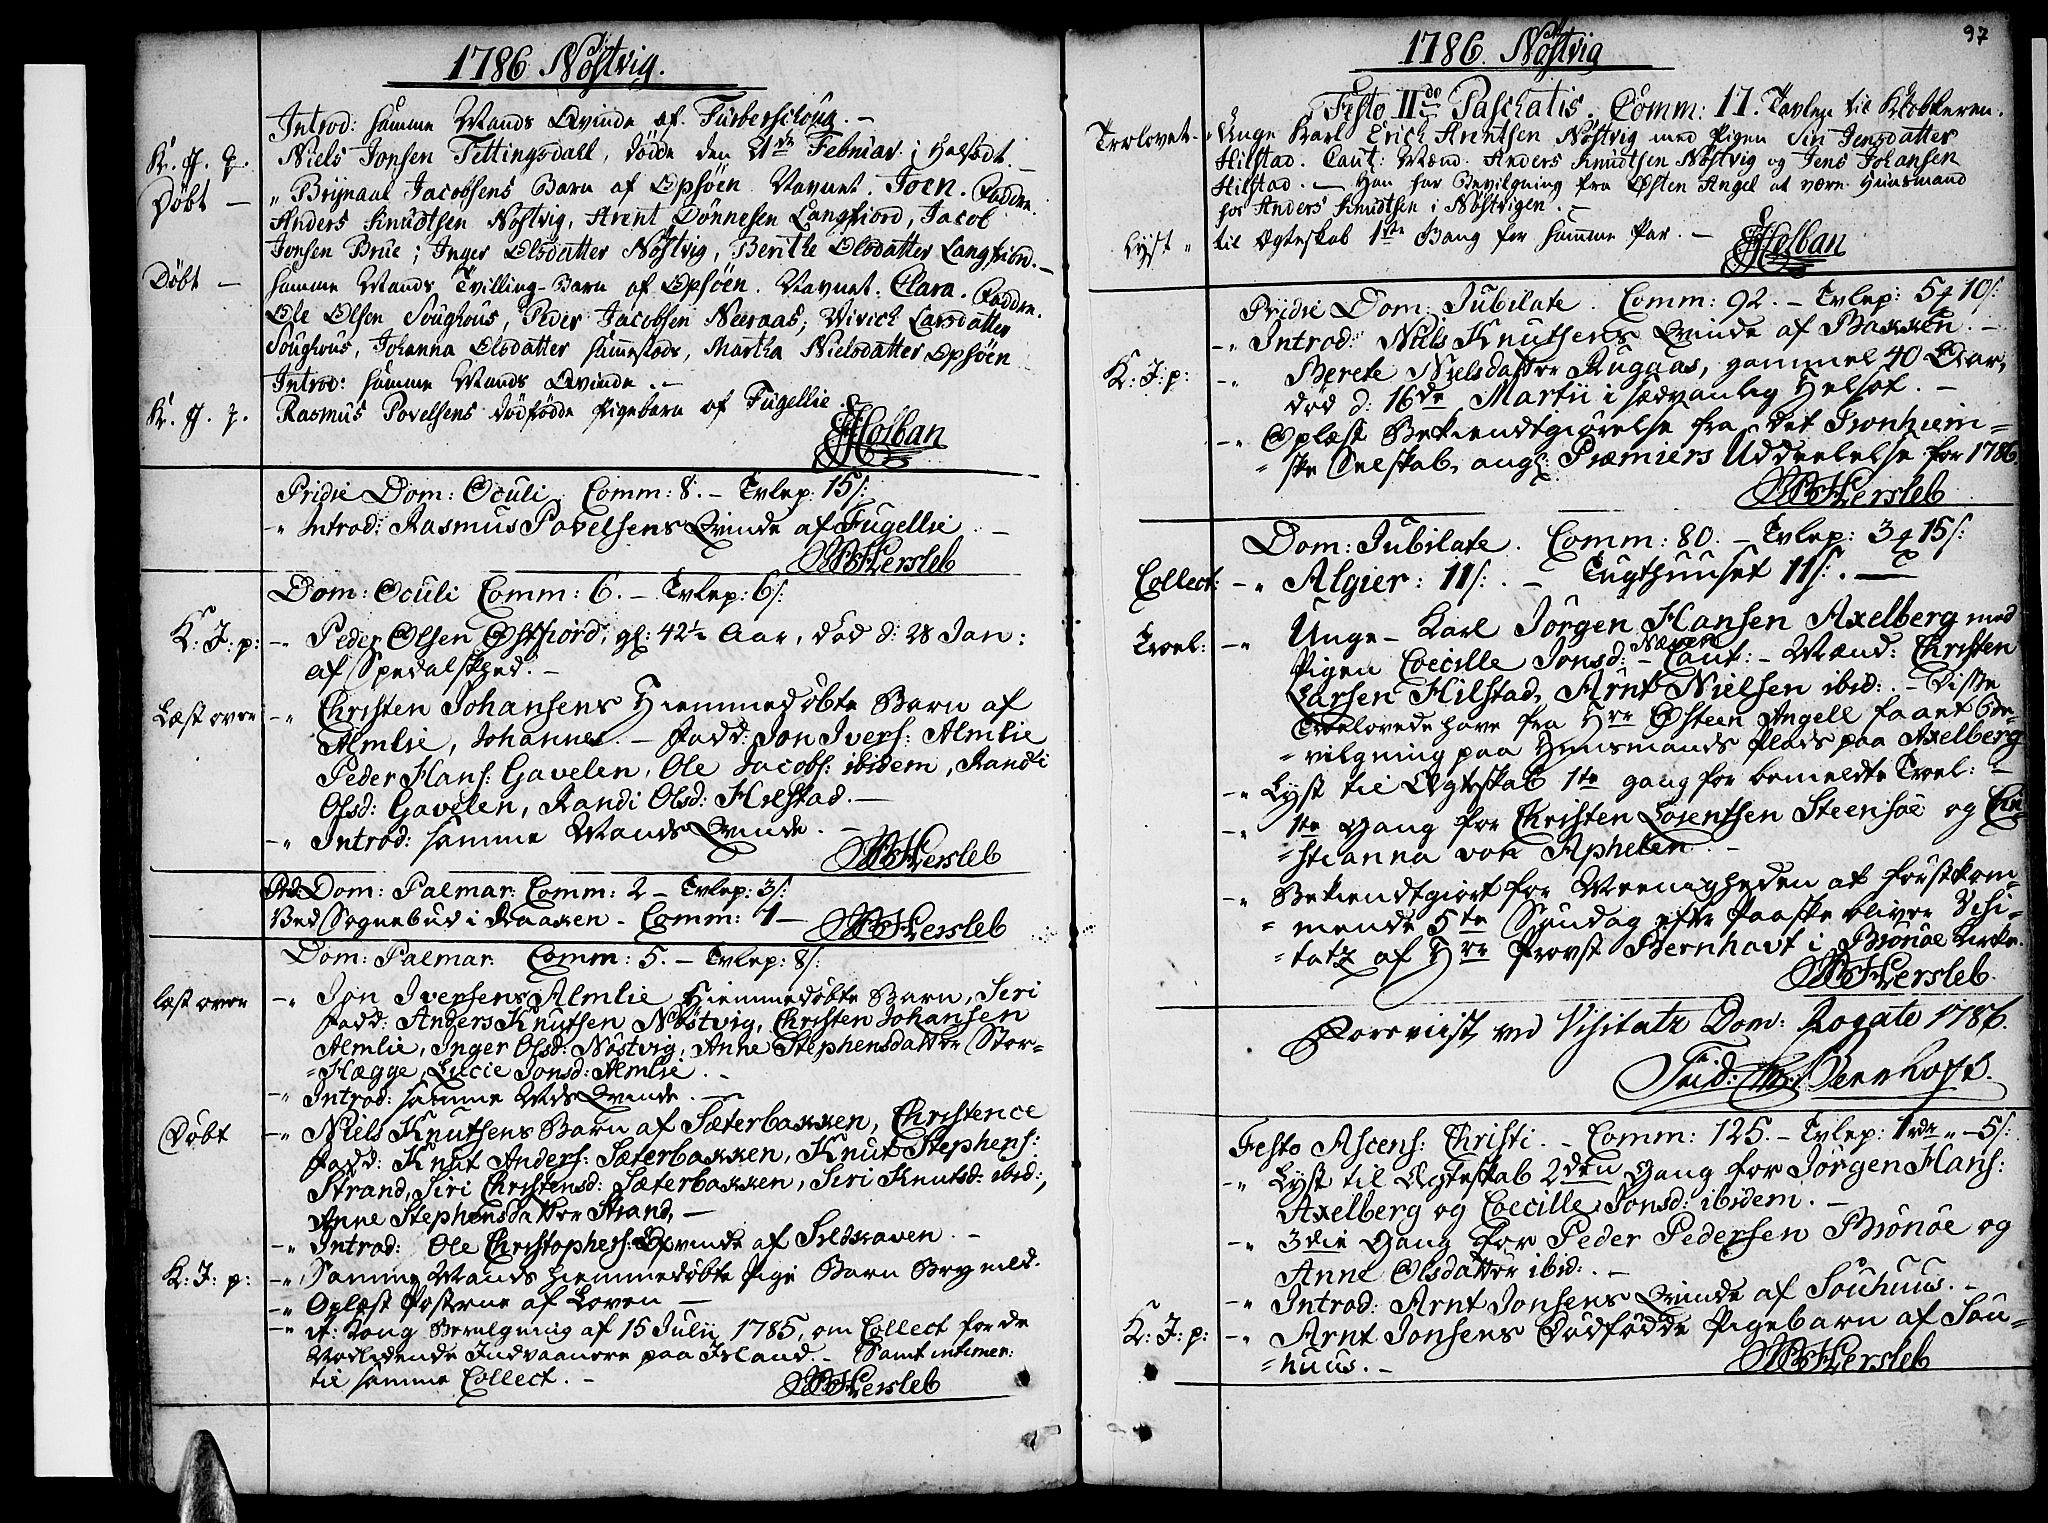 1786 Nöstvig.
Introd: samme Mands Qvinde af Furberschoug. –
K. J. p. Niels Jonsen Tettingsdall, döde den 21de Februar. i Helsodt. –
Döbt – „ Brynaal Jacobsens Barn af Opsöen. Navnet. Joen. Faddere.
Anders Knudtsen Nöstvig, Arent Dönnesen Langfiord, Jacob
Jonsen Brue; Inger Olsdatter Nöstvig, Berithe Olsdatter Langfiord. –
Döbt – samme Mands Tvilling-Barn af Opsöen. Navnet: Clara. Faddere.
Ole Olsen Soughous, Peder Jacobsen Neeraas, Virich Larsdatter
Soughous, Johanna Olsdatter sammestads, Martha Nielsdatter Opsöen
Introd: samme Mands Qvinde. –
K. J. p. Rasmus Povelsens dödfödde Pigebarn af Fugellie.
Holban
Pridie Dom: Oculi. Comm: 8. – Tvlep: 15 s:
„ Introd: Rasmus Povelsens Qvinde af Fugellie. –
Hersleb
Dom: Oculi Comm: 6. – Tvlep: 6 s:
K: J: p: –„ Peder Olsen Østfiord, gl: 42½ Aar, död d: 28 Jan:
af Spedalskhed. –
Læst over –„ Christen Johansens Hiemmedöbte Barn af
Almlie, Johannes. – Fadd: Jon Ivers: Almlie
Peder Hans: Gavelen, Ole Jacobs: ibidem, Randi
Olsd: Gavelen, Randi Olsd: Hilstad. –
–„ Introd: samme Mands Qvinde. –
Hersleb
Prid: Dom: Palmar: Comm: 2 – Tvlep: 3 s:
Ved Sognebud i Kraaken – Comm: 1 – Hersleb
Dom: Palmar: Comm: 5. – Tvlep: 8 s:
læst over –„ Jon Iversens Almlie Hiemmedöbte Barn, Seri
Fadd: Anders Knutsen Nöstvig, Christen Johansen
Almlie, Inger Olsd: Nöstvig, Anne Stephensdatter Stor-
=Hægge, Lucie Jonsd: Almlie. –
–„ Introd: samme Mds Qvinde. –
Döbt –„ Niels Knutsens Barn af Sæterbakken, Christence
Fadd: Knut Anders: Sæterbakken, Knut Stephens:
Strand, Siri Christensd: Sæterbakken, Siri Knutsd: ibid:,
Anne Stephensdatter Strand, –
–„ Introd: Ole Christophers: Qvinde af Sildhaven. –
K: J: p: –„ Samme Mands hiemmedöbte Pige Barn Brynild.
–„ Oplæst Posterne af Loven –
–„ it: Kong Bevilgning af 15 Julii 1785, om Collect for de
Nødlidende Indvaanere paa Island. – Samt intimer:
til samme Collect. –
Hersleb
97
1786. Nöstvig
Festo IIdo Paschatis. Comm: 17. Tavlen til Klokkeren.
Trolovet – „ Unge Karl Erich Arentsen Nöstvig med Pigen Siri Jensdatter
Hilstad. Caut: Mænd. Anders Knudtsen Nöstvig og Jens Johansen
Hilstad. – Han har Bevilgning fra Østen Angel at være Huusmand
hos Anders Knudtsen i Nöstvigen. –
Lyst „ til Ægteskab 1ste Gang for samme Par. –
Holban
Pridie Dom: Jubilate. Comm: 92. – Tvlep: 5 ₰ 10 s:
–„ Introd: Niels Knutsens Qvinde af Bakken. –
K: J: p: –„ Berete Nielsdatter Rugaas, gammel 40 Aar,
död d: 16de Martii i sædvanlig Helsot. –
–„ Oplæst Bekiendtgiörelse fra det Tronhiem-
=ske Selskab, ang: Præmiers Uddeelelse for 1786.
Hersleb
Dom: Jubilate. Comm: 80. – Tvlep: 3 ₰ 15 s:
Collect: –„ Algier: 11 s: – Tugthuuset 11 s:. –
Troel: –„ Unge – Karl Jörgen Hansen Axelberg med
Pigen Coecille Jonsd: Næven – Caut: – Mænd: Christen
Larsen Hilstad, Arnt Nielsen ibid:. – Disse
Troelovede have fra Hrr Østeen Angell faaet Be-
=vilgning paa Huusmands Plads paa Axelberg
–„ Lyst til Ægteskab 1te gang for bemeldte Troel: –
–„ 1te Gang for Christen Lorentsen Steensöe og Chri-
=stianna von Aphelen. –
–„ Bekiendtgiort for Meenigheden at förstkom-
=mende 5te Söndag efter Paaske bliver Visi-
=tatz af Hrr Provst Bernhoft i Brönöe Kirke.
Hersleb.
Foreviist ved Visitatz Dom: Rogate 1786.
Frid: Chr: Bernhoft.
Festo Ascens: Christi. – Comm: 125. – Tvlep: 1 rdr „ – 5 s:
–„ Lyst til Ægteskab 2den Gang for Jörgen Hans:
Axelberg og Coecille Jonsd: ibidem. –
–„ 3die Gang for Peder Pedersen Brönöe og
Anne Olsdatter ibid:. –
–„ Introd: Arnt Jonsens Qvinde af Souhuus. –
K: J: p: –„ Arnt Jonsens Dödfödde Pigebarn af Sou-
=huus. –
Hersleb